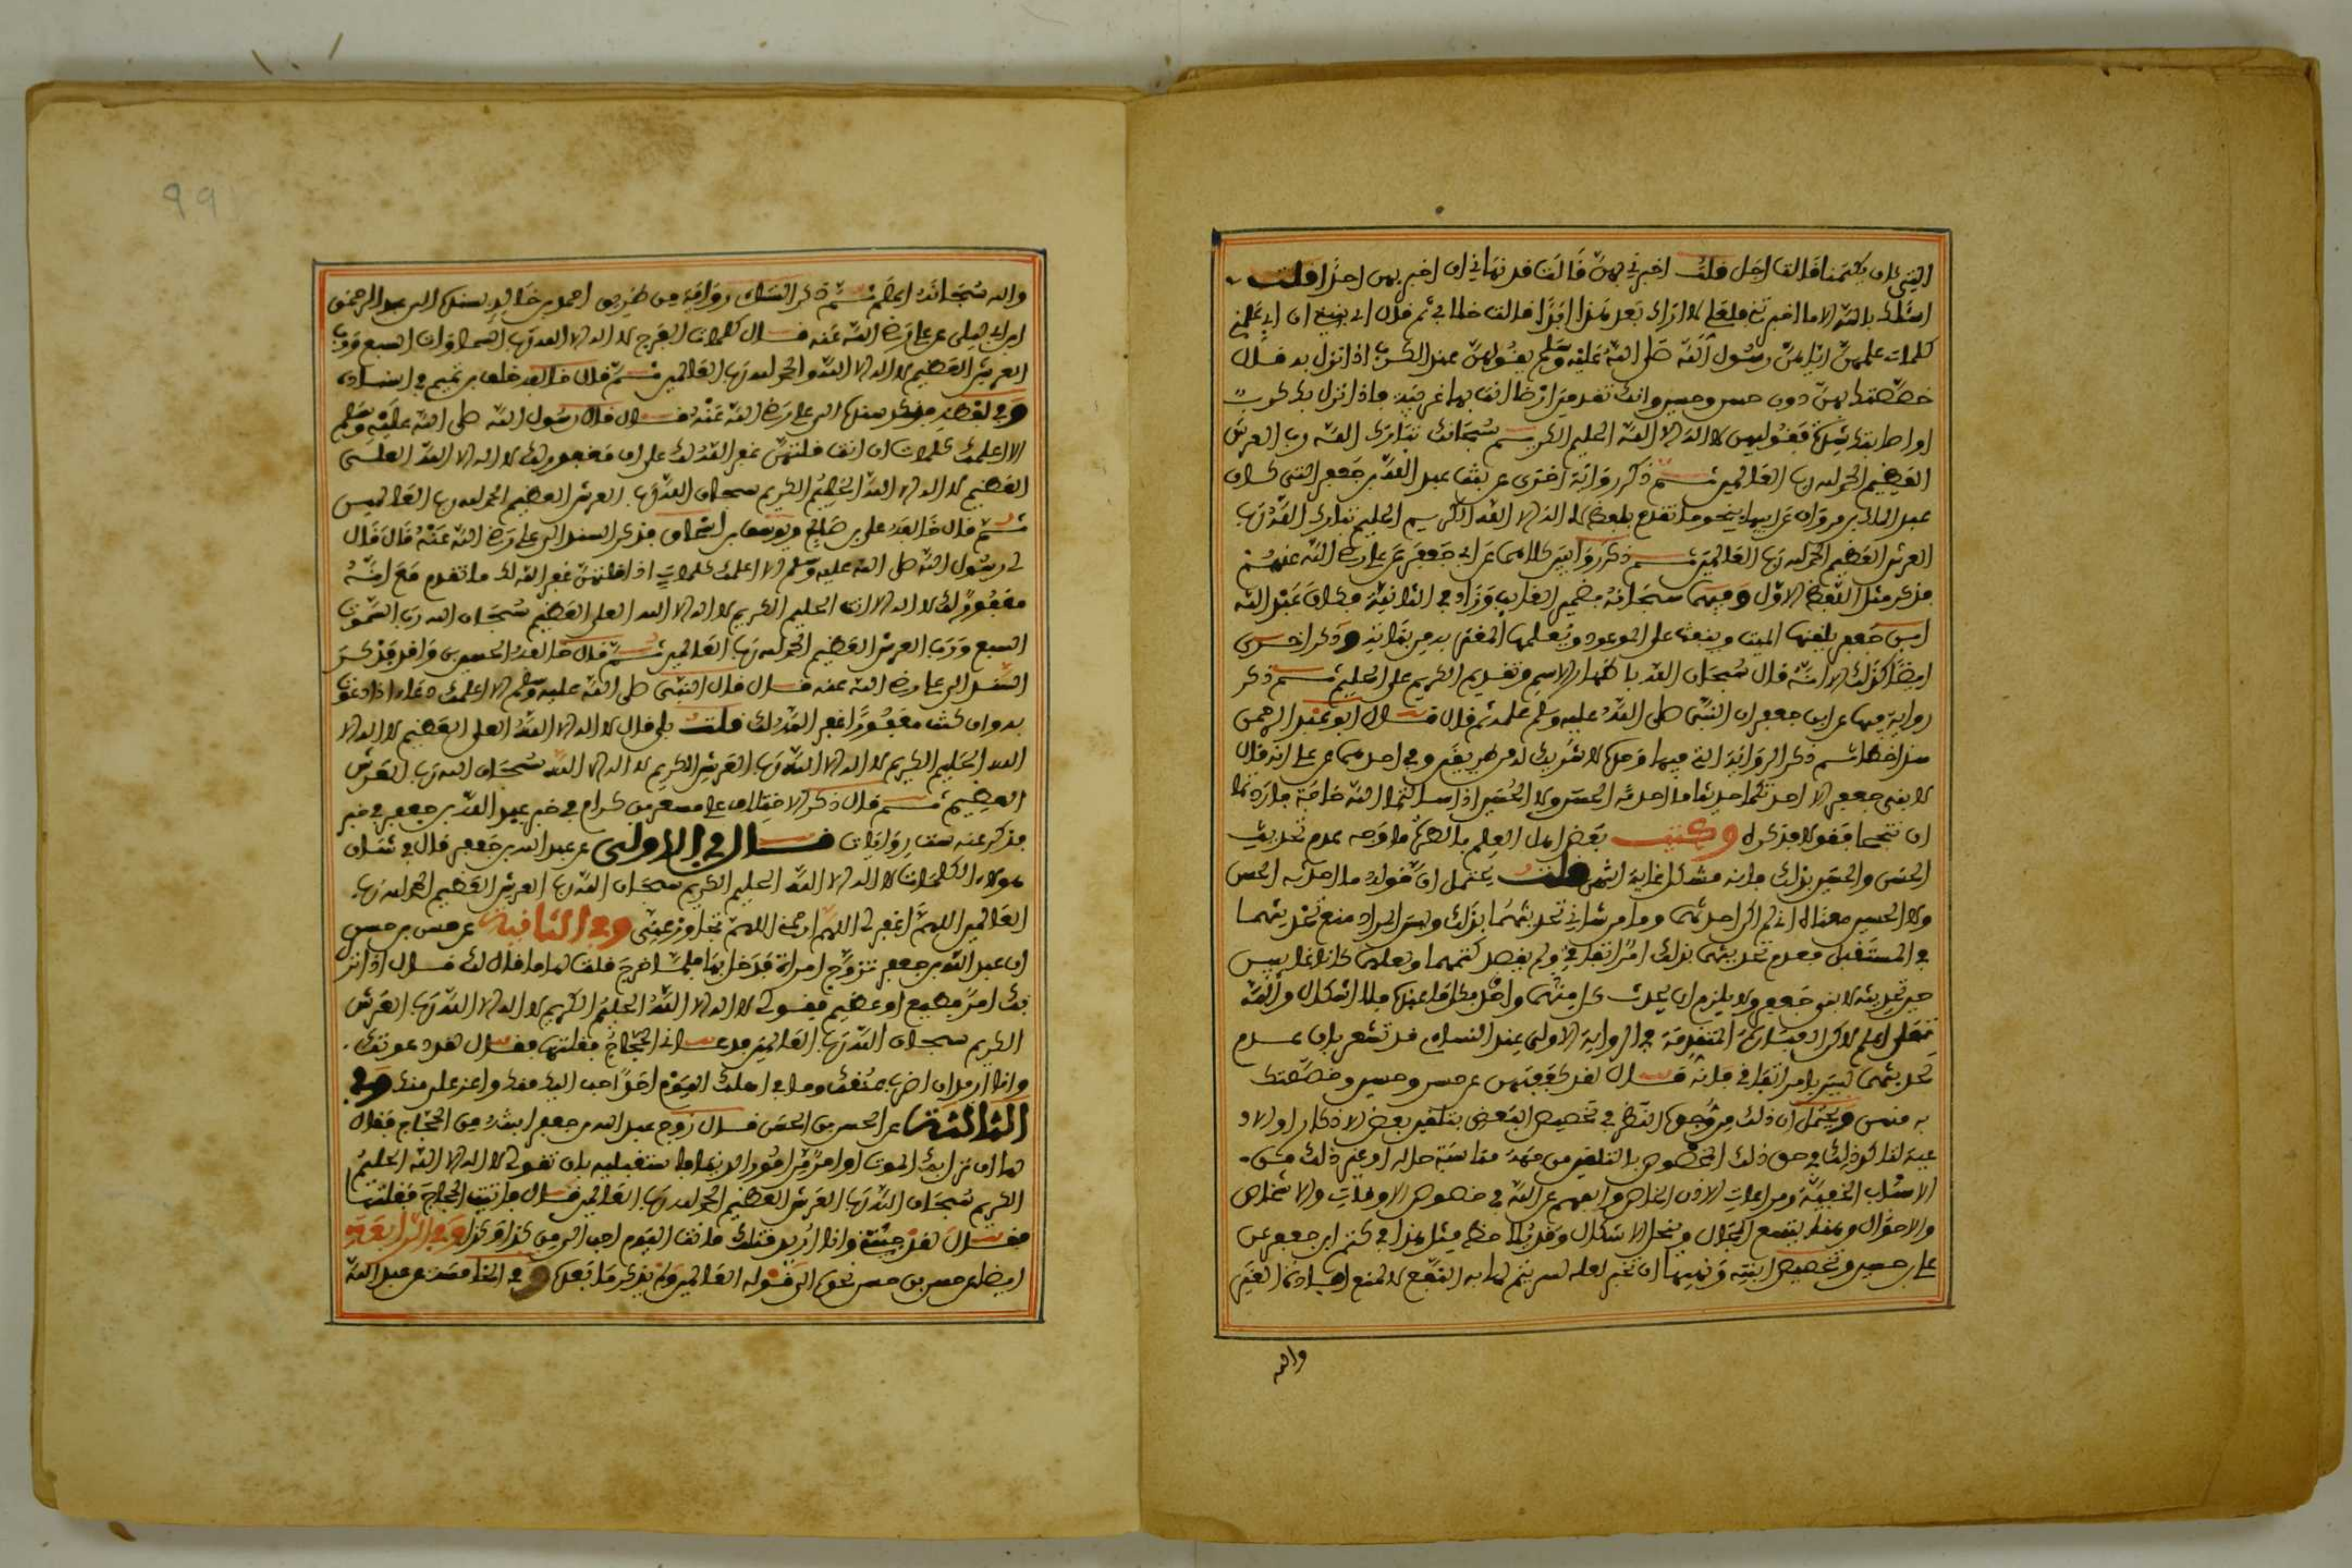 اليتي ان يكتمنا قالت اجل قلت اخبرني بهن قالت قد نهاني ان اخبر بهن احدا قلت
اسئلك بالله الا ما اخبرتني فلعلي لا اراك بعد هذا ابدا فقالت خالي ثم قال اي بني ان ابي علمني
كلمات علمهن اياهن رسول الله صلى الله عليه وسلم يقولهن عند الكرب اذا نزل به قال
خصصتك بهن دون حسن وحسين وانك تقدمين ارضا انت بها غريبة فاذا نزل بك كرب
او اصابتك شدة فقوليهن لا اله الا الله الحليم الكريم سبحانك تبارك الله رب العرش
العظيم الحمد لله رب العالمين ثم ذكر رواية اخرى عن بنت عبد الله بن جعفر التي كان
عبد الملك بن مروان عن ابيها بنحو ما تقدم بلفظ لا اله الا الله الكريم الحليم تبارك الله رب
العرش العظيم الحمد لله رب العالمين ثم ذكر روايتين كلاهما عن ابي جعفر عن علي رضي الله عنهم
فذكر مثل اللفظ الاول وفيهما سبحانه بضمير الغائب وزاد في الثانية فكان عبد الله
ابن جعفر يلقنها الميت وينفث على الموعود ويعلمها المغتربة من بناته وذكر اخرى
ايضا كذلك الا انه قال سبحان الله باظهار الاسم وتقديم الكريم على الحليم ثم ذكر
رواية فيها عن ابن جعفر ان النبي صلى الله عليه وسلم علمه ثم قال قال ابو عبد الرحمن
هذا خطا ثم ذكر الرواية التي فيها وحده لا شريك له من طريقين وفي احدهما عن علي انه قال
لابني جعفر الا احدثكما حديثا ما حدثته الحسن ولا الحسين اذا سالتما الله حاجة فاردتما
ان تنجحا فقولا فذكره وكتب بعض اهل العلم بالهامش ما وجه عدم تحديث
الحسن والحسين بذلك فانه مشكل غاية انتهى قلت يحتمل ان قوله ما حدثته الحسن
ولا الحسين معناه اني لم اكن احدثهما وما من شاني تحديثهما بذلك وليس المراد منع تحديثهما
في المستقبل فعدم تحديثهما بذلك امر اتفاقي ولم يقصد كتمهما ولعلهما كانا غائبين
حين تحديثه لابني جعفر ولا يلزم ان يحدث كل منهما واحد بكل ما عنده فلا اشكال والله
تعلى اعلم لاكن العبارة المتقدمة في الرواية الاولى عند النسائي قد تشعر بان عدم
تحديثهما ليس بامر اتفاقي فانه قال لقد كففتهن عن حسن وحسين وخصصتك
به منهن ويحتمل ان ذلك من وجوه النظر في تخصيص البعض بتلقين بعض الاذكار او الاد
عية لقابلية ذلك وحق ذلك المخصوص بالتلقين من جهة مناسبة حاله او غير ذلك من
الاسباب الخفية ومراعات الاذن الخاص والفهم عن الله في خصوص الاوقات والاشخاص
والاحوال وبهذا يتسع المجال وينحل الاشكال وقد يلاحظ مثل هذا في كتم ابن جعفر عن
علي بن حسين وتخصيص ابنته ونهيها ان تخبر لعله لئلا يتم لها به النفع لا لمنع افادتها الغير
والله
والله سبحانه اعلم ثم ذكر النساي رواية من طريق احمد بن خالد بسنده الى عبد الرحمن
ابن ابي ليلى عن علي رضي الله عنه قال كلمات الفرج لا اله الا الله رب السماوات السبع ورب
العرش العظيم لا اله الا الله والحمد لله رب العالمين ثم قال خالفه خلف بن تميم في اسناده
وفي لفظه فذكر سنده الى علي رضي الله عنه قال قال رسول الله صلى الله عليه وسلم
الا اعلمك كلمات ان انت قلتهن غفر الله لك على انه مغفور لك لا اله الا الله العلي
العظيم لا اله الا الله الحليم الكريم سبحان الله رب العرش العظيم الحمد لله رب العالمين
ثم قال خالفه علي بن صالح ويوسف بن اسحاق فذكر السند الى علي رضي الله عنه قال قال
لي رسول الله صلى الله عليه وسلم الا اعلمك كلمات اذا قلتهن غفر الله لك ما تقدم مع انه
مغفور لك لا اله الا انت الحليم الكريم لا اله الا الله العلي العظيم سبحان الله رب السموت
السبع ورب العرش العظيم الحمد لله رب العالمين ثم قال خالفه الحسين بن واقد فذكر
السند الى علي رضي الله عنه قال قال النبي صلى الله عليه وسلم الا اعلمك دعاء اذا دعوت
به وان كنت مغفورا غفر الله لك قلت بلى قال لا اله الا الله العلي العظيم لا اله الا
الله الحليم الكريم لا اله الا الله رب العرش الكريم لا اله الا الله سبحان الله رب العرش
العظيم ثم قال ذكر الاختلاف على مسعر بن كدام في خبر عبد الله بن جعفر في خبر
فذكر عنه ست روايات قال في الاولى عن عبد الله بن جعفر قال في شان
هولاء الكلمات لا اله الا الله الحليم الكريم سبحان الله رب العرش العظيم الحمد لله رب
العالمين اللهم اغفر لي اللهم ارحمني اللهم تجاوز عني وفي الثانية عن حسن بن حسن
ان عبد الله بن جعفر تزوج امراة فدخل بها فلما خرج قلت لها ما قال لك قال اذا نز
بك امر فظيع او عظيم فقولي لا اله الا الله الحليم الكريم لا اله الا الله رب العرش
الكريم سبحان الله رب العالمين فدعاني الحجاج فقلتها فقال لقد دعوتك
وانا اريد ان اضرب عنقك وما في اهلك اليوم احد احب الي منك واعز علي منك وفي
الثالثة عن الحسن بن الحسن قال زوج عبد الله بن جعفر ابنته من الحجاج فقال
لها ان نزل بك الموت او امر من امور الدنيا فاستقبليه بان تقولي لا اله الا الله الحليم
الكريم سبحان الله رب العرش العظيم الحمد لله رب العالمين قال فاتيت الحجاج فقلتها
فقال لقد جئتني وانا اريد قتلك فانت اليوم احب الي من كذا وكذا وفي الرابعة
ايضا عن حسن بن حسن نحوه الى قوله العالمين ولم يذكر ما بعده وفي الخامسة عن عبد الله